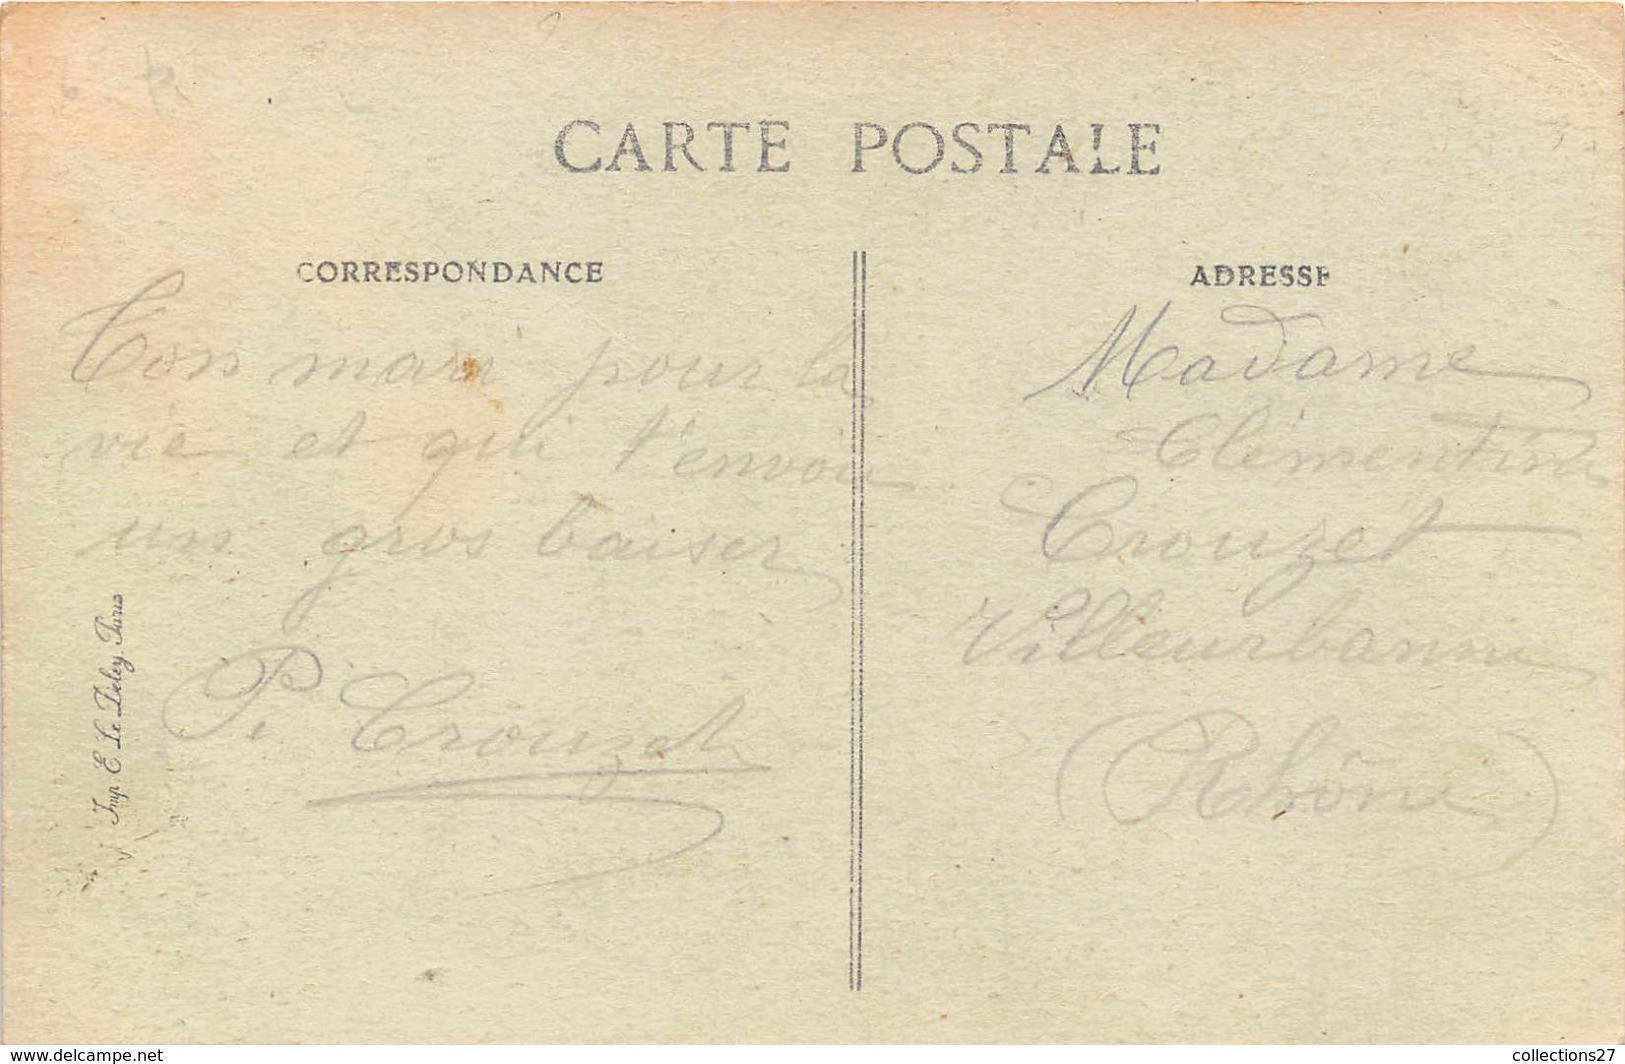 CARTE POSTALE
CORRESPONDANCE
Ton mari pour la
vie et qui t'envoie
un gros baiser
P. Crouzet
Imp. E. Le Deley, Paris
ADRESSE
Madame
Clémentine
Crouzet
Villeurbanne
(Rhône)
www.delcampe.net
collections27